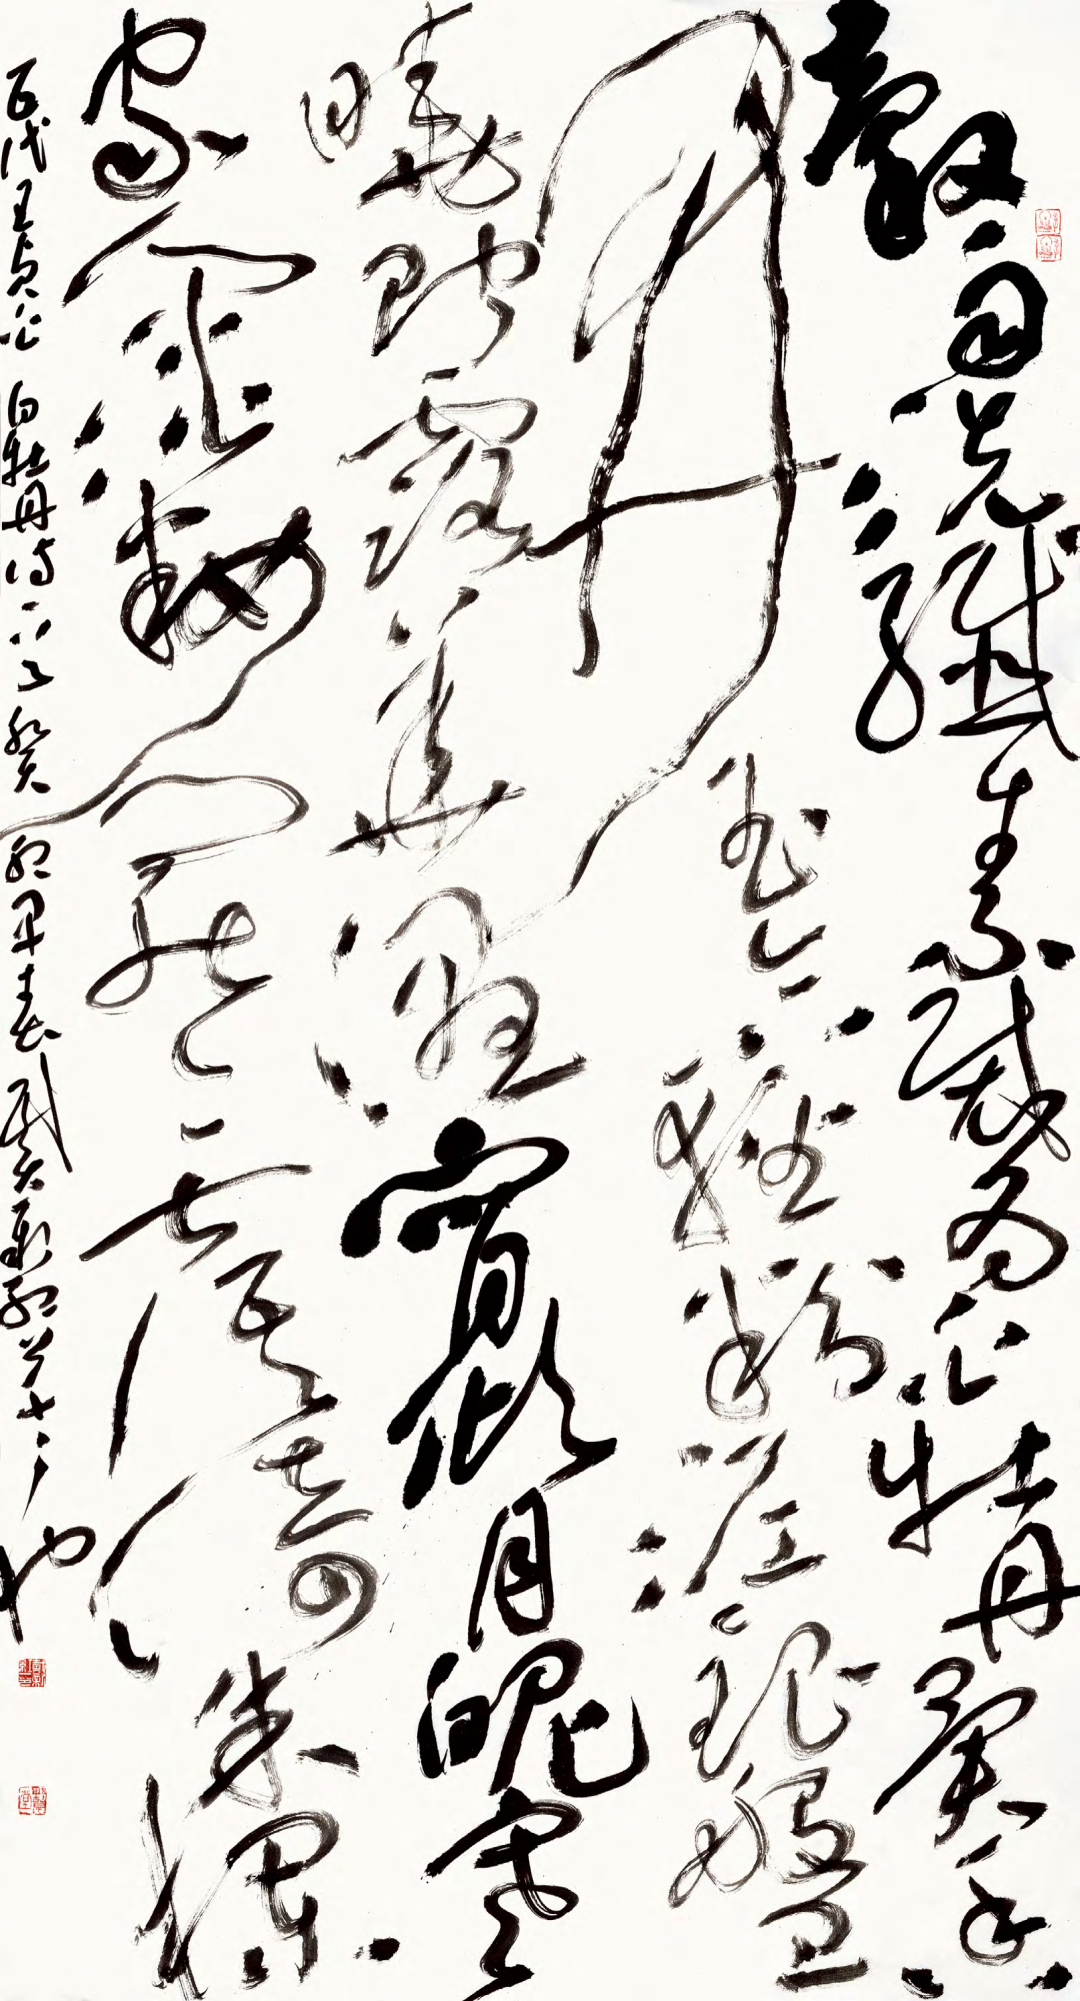 穀雨洗纖素裁為白牡丹異香
開玉合輕粉泥銀盤
曉貯露華濕宵傾月魄寒
家人淡粧罷無語倚朱欄
五代王貞白 白牡丹詩一首 癸卯早春